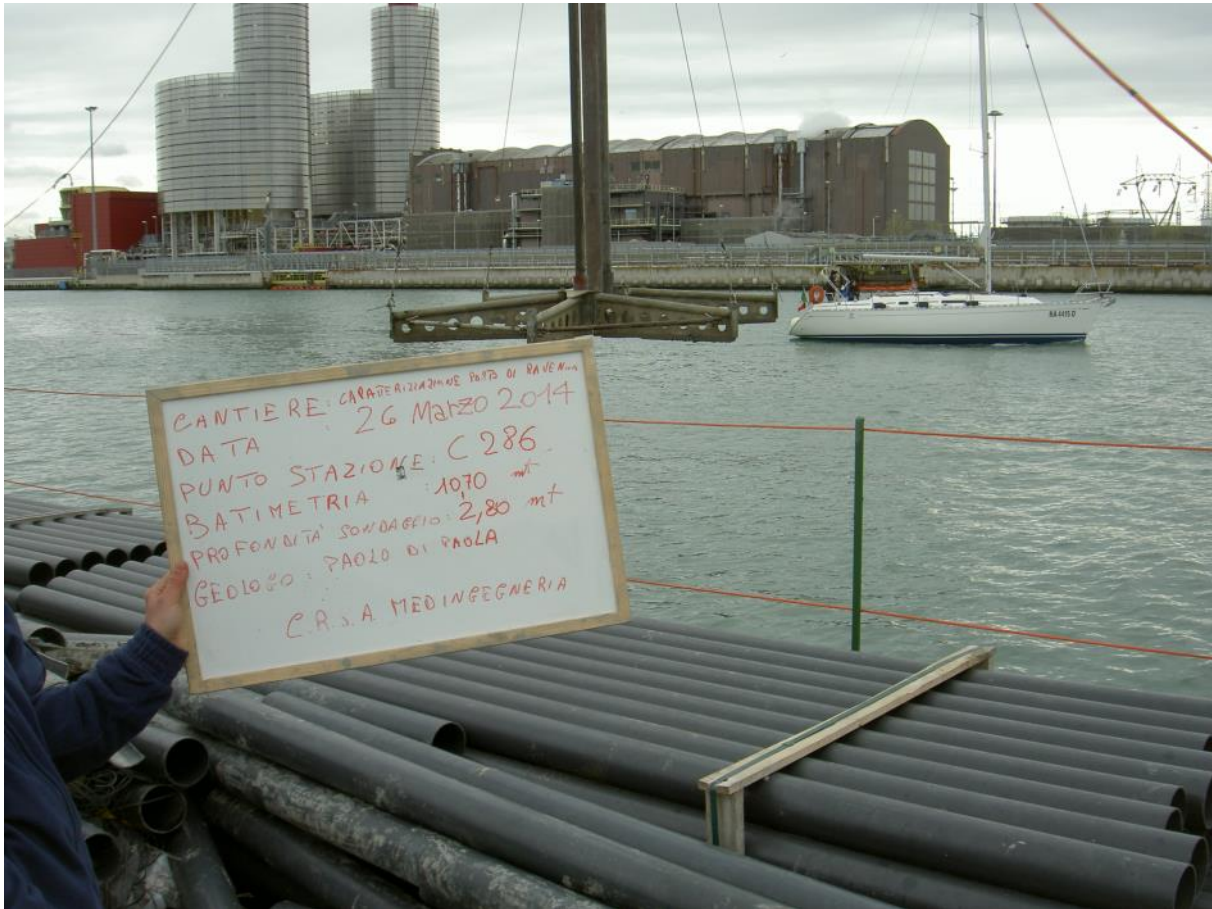 CANTIERE: CARATERIZIAZIONE PORTO DI RAVENNA
DATA : 26 Marzo 2014
PUNTO STAZIONE: C 286
BATIMETRIA : 10,70 mt
PROFONDITÀ SONDAGGIO: 2,80 mt
GEOLOGO: PAOLO DI PAOLA
C.R.S.A. MEDINGEGNERIA
RA 4415 D